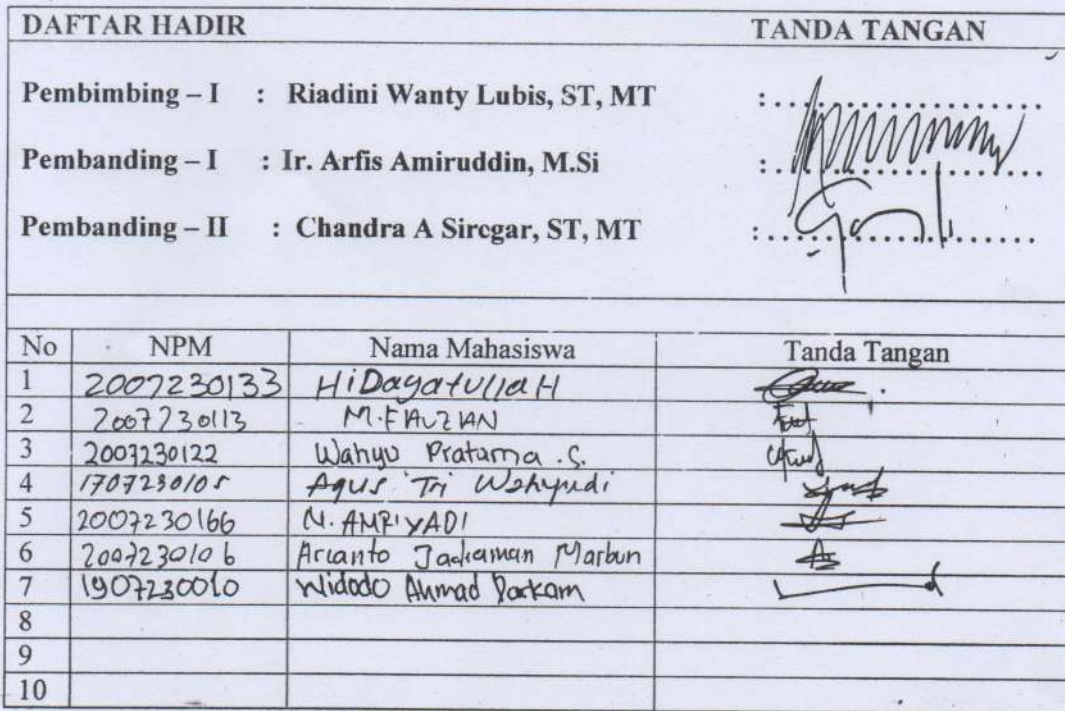 DAFTAR HADIR TANDA TANGAN
Pembimbing – I : Riadini Wanty Lubis, ST, MT : ..............................
Pembanding – I : Ir. Arfis Amiruddin, M.Si : ..............................
Pembanding – II : Chandra A Siregar, ST, MT : ..............................
No NPM Nama Mahasiswa Tanda Tangan
1 2007230133 HiDayatullaH
2 2007230113 M. FAUZIAN
3 2007230122 Wahyu Pratama .S.
4 1707230105 Agus Tri Wahyudi
5 2007230166 M. AMRIYADI
6 2007230106 Arianto Jadiaman Marbun
7 1907230010 Widodo Ahmad
8
9
10